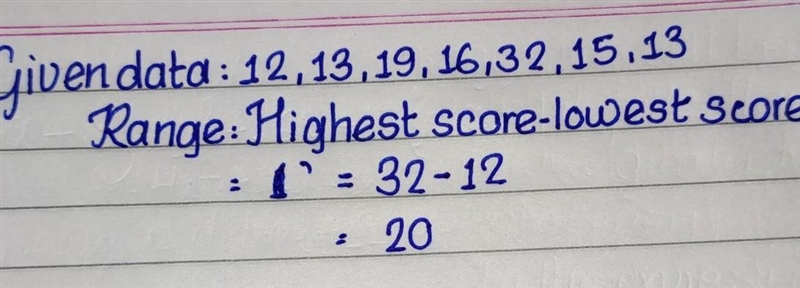 Given data: 12, 13, 19, 16, 32, 15, 13
Range: Highest score-lowest score
= = 32-12
= 20